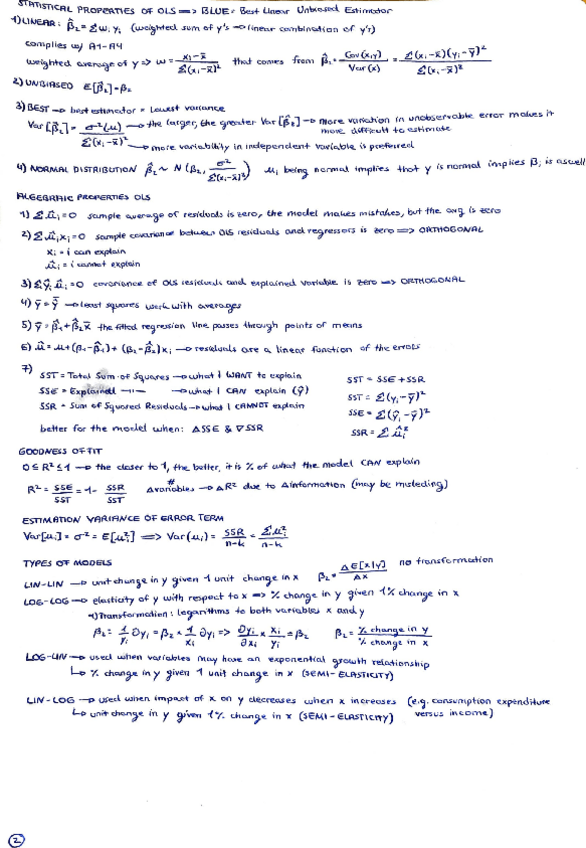 STATISTICAL PROPERTIES OF OLS => BLUE: Best Linear Unbiased Estimator
1) LINEAR: β̂₂ = Σ wᵢ yᵢ (weighted sum of y's → linear combination of y's)
complies w/ A1-A4
weighted average of y => w = (xᵢ - x̄) / Σ(xᵢ - x̄)² that comes from β̂₂ = Cov(x,y) / Var(x) = Σ(xᵢ - x̄)(yᵢ - ȳ)² / Σ(xᵢ - x̄)²
2) UNBIASED E[β̂₂] = β₂
3) BEST → best estimator = lowest variance
Var[β̂₂] = σ²(u) / Σ(xᵢ - x̄)² → the larger, the greater Var[β̂₂] → more variation in unobservable error makes it
more difficult to estimate
→ more variability in independent variable is preferred
4) NORMAL DISTRIBUTION β̂₂ ~ N(β₂, σ² / Σ(xᵢ - x̄)²) uᵢ being normal implies that y is normal implies βⱼ is as well
ALGEBRAIC PROPERTIES OLS
1) Σ ûᵢ = 0 sample average of residuals is zero, the model makes mistakes, but the avg is zero
2) Σ ûᵢxᵢ = 0 sample covariance between OLS residuals and regressors is zero => ORTHOGONAL
xᵢ = i can explain
ûᵢ = i cannot explain
3) Σ ŷᵢ ûᵢ = 0 covariance of OLS residuals and explained variable is zero => ORTHOGONAL
4) ȳ = ŷ̄ → least squares work with averages
5) ȳ = β̂₁ + β̂₂x̄ the fitted regression line passes through points of means
6) û = u + (β₁ - β̂₁) + (β₂ - β̂₂)xᵢ → residuals are a linear function of the errors
7) SST = Total Sum of Squares → what I WANT to explain
SSE = Explained —"— → what I CAN explain (ŷ)
SSR = Sum of Squared Residuals → what I CANNOT explain
better for the model when: ΔSSE & ∇SSR
SST = SSE + SSR
SST = Σ(yᵢ - ȳ)²
SSE = Σ(ŷᵢ - ȳ)²
SSR = Σ ûᵢ²
GOODNESS OF FIT
0 ≤ R² ≤ 1 → the closer to 1, the better, it is % of what the model CAN explain
R² = SSE / SST = 1 - SSR / SST Δ # variables → ΔR² due to Δinformation (may be misleding)
ESTIMATION VARIANCE OF ERROR TERM
Var[uᵢ] = σ² = E[uᵢ²] => Var(uᵢ) = SSR / n-k = Σ ûᵢ² / n-k
TYPES OF MODELS
LIN-LIN → unit change in y given 1 unit change in x β₂ = ΔE[x|y] / Δx no transformation
LOG-LOG → elasticity of y with respect to x => % change in y given 1% change in x
→ Transformation: logarithms to both variables x and y
β₂ = 1/yᵢ ∂yᵢ = β₂ × 1/xᵢ ∂yᵢ => ∂yᵢ/∂xᵢ × xᵢ/yᵢ = β₂ β₂ = % change in y / % change in x
LOG-LIN → used when variables may have an exponential growth relationship
↳ % change in y given 1 unit change in x (SEMI-ELASTICITY)
LIN-LOG → used when impact of x on y decreases when x increases (e.g. consumption expenditure
versus income)
↳ unit change in y given 1% change in x (SEMI-ELASTICITY)
2